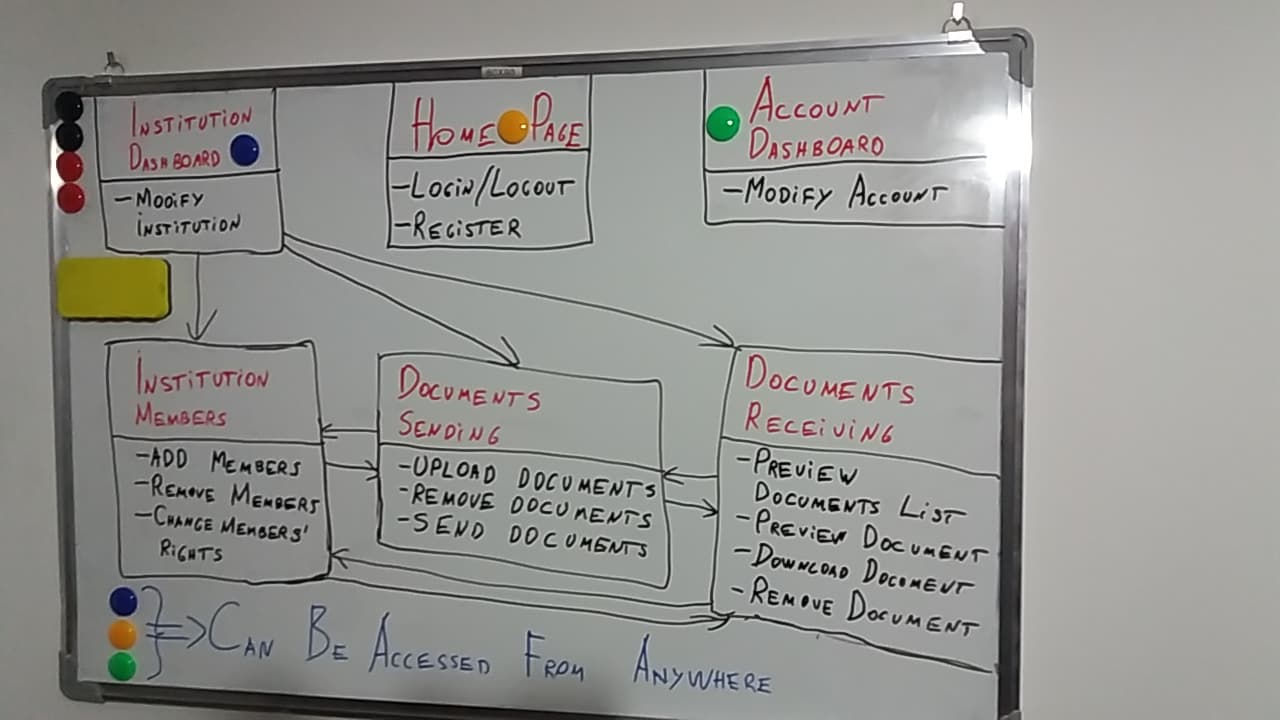 INSTITUTION
DASHBOARD
-MODIFY
INSTITUTION
HOME PAGE
-LOGIN/LOGOUT
-REGISTER
ACCOUNT
DASHBOARD
-MODIFY ACCOUNT
INSTITUTION
MEMBERS
-ADD MEMBERS
-REMOVE MEMBERS
-CHANGE MEMBERS'
RIGHTS
DOCUMENTS
SENDING
-UPLOAD DOCUMENTS
-REMOVE DOCUMENTS
-SEND DOCUMENTS
DOCUMENTS
RECEIVING
-PREVIEW
DOCUMENTS LIST
-PREVIEW DOCUMENT
-DOWNLOAD DOCUMENT
-REMOVE DOCUMENT
} => CAN BE ACCESSED FROM ANYWHERE